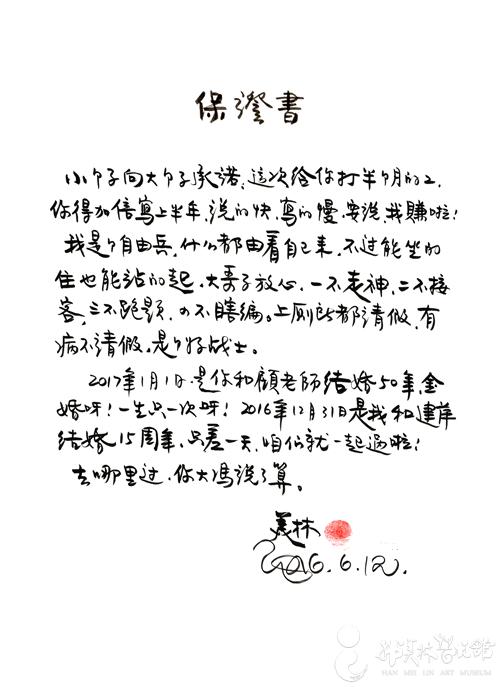 保證書
小个子向大个子承诺,這次给你打半个月的工,
你得加倍寫上半年,说的快,寫的慢,要说,我賺啦!
我是个自由兵,什么都由着自己来,不过能坐的
住也能站的起,大哥子放心,一不走神,二不接
客,三不跑题,四不瞎编。上厕所都请假,有
病不请假,是个好战士。
2017年1月1日是你和顧老師结婚50年,金
婚呀!一生只一次呀!2016年12月31日是我和建萍
结婚15周年,只差一天,咱们就一起過啦!
去哪里过,你大馮说了算。
美林
2016.6.12.
韩美林艺术馆
HAN MEI LIN ART MUSEUM